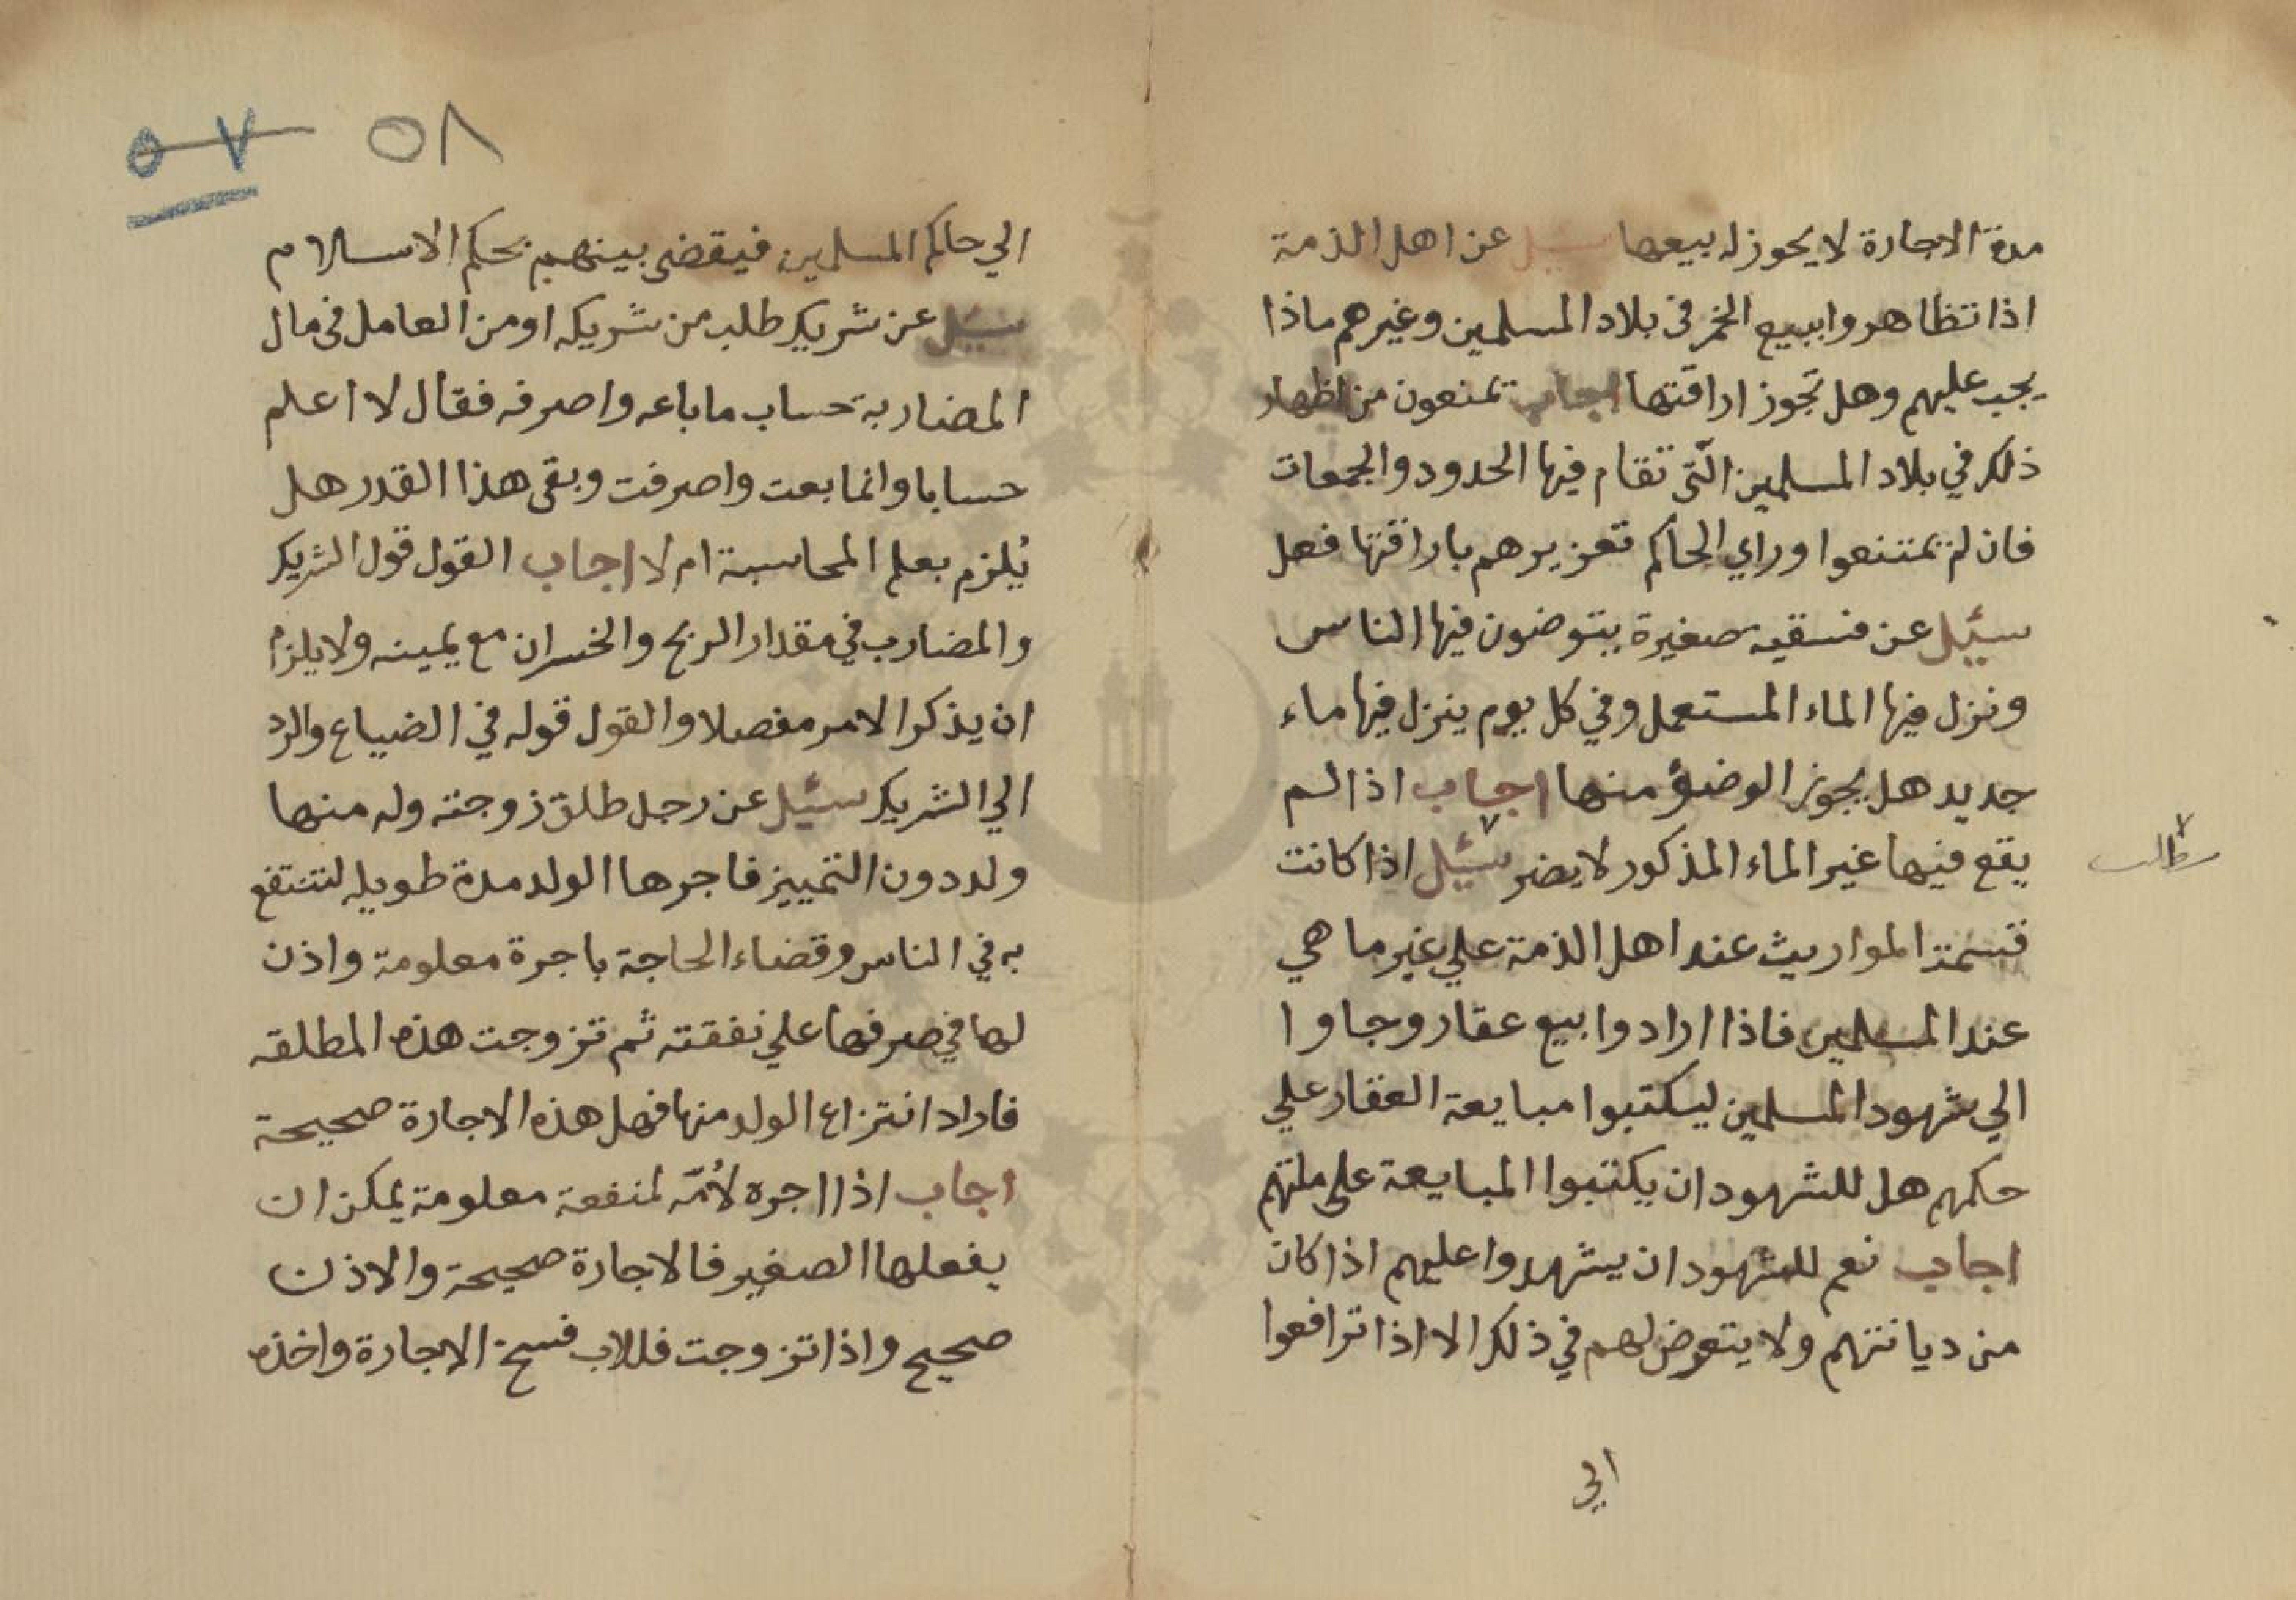 مدة الاجارة لا يجوز له بيعها سئيل عن اهل الذمة
اذا تظاهروا ببيع الخمر في بلاد المسلمين وغيرهم ماذا
يجب عليهم وهل تجوز اراقتها اجاب تمنعون من اظهار
ذلك في بلاد المسلمين الّتي تقام فيها الحدود والجمعات
فان لم تمتنعوا وراي الحاكم تعزيرهم باراقتها فعل
سئيل عن فسقيه صغيرة يتوضون فيها الناس
ونزل فيها الماء المستعمل وفي كل يوم ينزل فيها ماء
جديد هل يجوز الوضؤ منها اجاب اذا لم
يقع فيها غير الماء المذكور لا يضر سئيل اذا كانت
قسمة المواريث عند اهل الذمة علي غير ما هي
عند المسلمين فاذا ارادوا بيع عقار وجاوا
الي شهود المسلمين ليكتبوا مبايعة العقار علي
حكمهم هل للشهود ان يكتبوا المبايعة على ملتهم
اجاب نعم للشهود ان يشهدوا عليهم اذا كان
من ديانتهم ولا يتعرض لهم في ذلك الا اذا ترافعوا
الي
٥٨
٥٧
الي حاكم المسلمين فيقضى بينهم بحكم الاسلام
سئيل عن شريك طلب من شريكه او من العامل في مال
المضاربة حساب ما باعه واصرفه فقال لا اعلم
حسابا وانما بعت واصرفت وبقى هذا القدر هل
يُلزم بعلم المحاسبة ام لا اجاب القول قول الشريك
والمضارب في مقدار الربح والخسران مع يمينه ولا يلزم
ان يذكر الامر مفصلا والقول قوله في الضياع والرد
الي الشريك سئيل عن رجل طلق زوجته وله منها
ولد دون التمييز فاجرها الولد مدة طويله لتنتفع
به في الناس وقضاء الحاجة باجرة معلومة واذن
لها في صرفها علي نفقته ثم تزوجت هذه المطلقه
فاراد انتزاع الولد منها فهل هذه الاجارة صحيحة
اجاب اذا اجره لأُمّه لمنفعة معلومة يمكن ان
يفعلها الصغير فالاجارة صحيحة والاذن
صحيح واذا تزوجت فللاب فسخ الاجارة واخذه